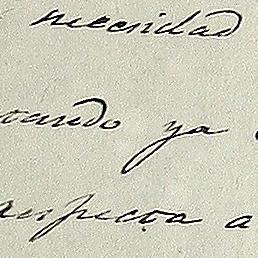 necesidad
tando ya
respecto a